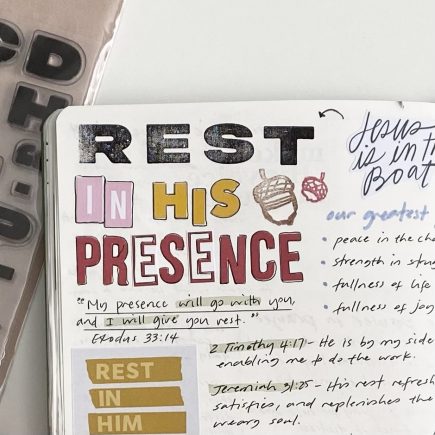 REST
IN HIS
PRESENCE
"My presence will go with you,
and I will give you rest."
Exodus 33:14
REST
IN
HIM
Jesus
is in th
Boat
our greatest
peace in the cha
strength in stru
fullness of life
fullness of joy
2 Timothy 4:17 - He is by my side
enabling me to do the work.
Jeremiah 31:25 - His rest refresh
satisfies, and replenishes the
weary soul.